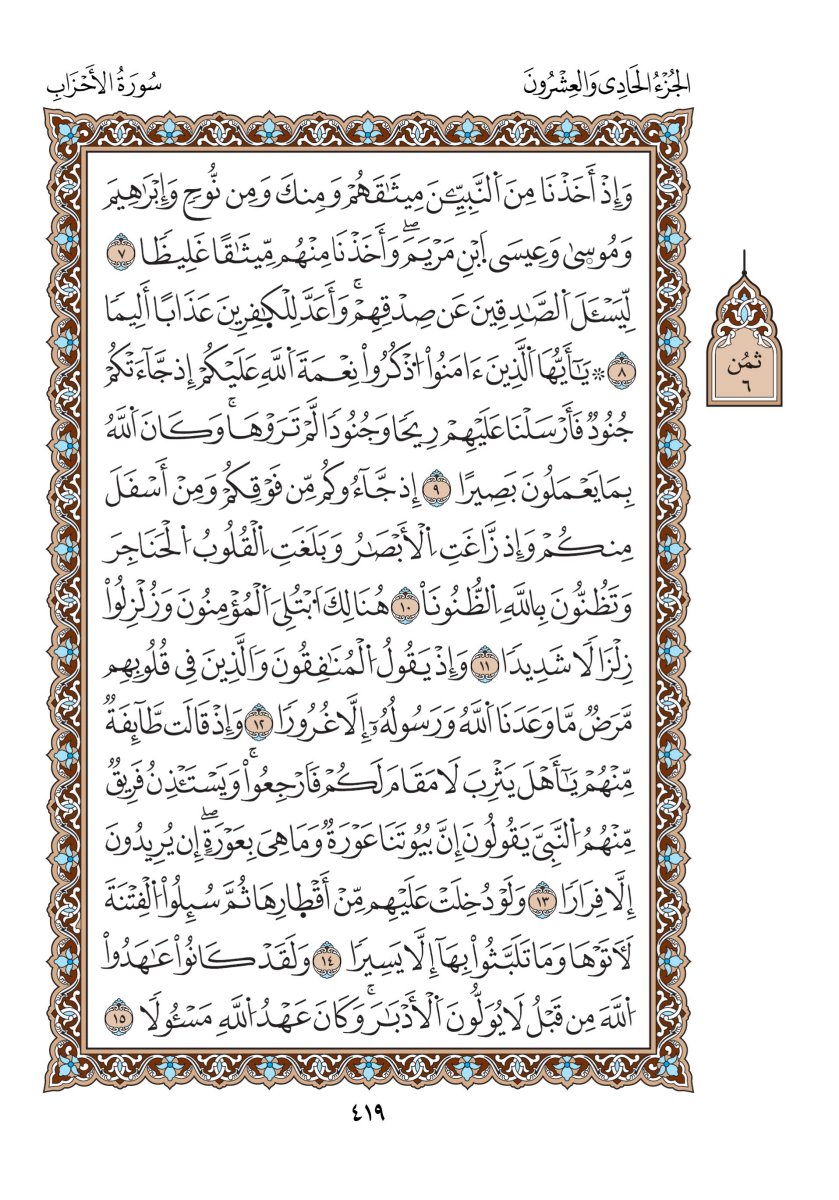 الجُزْءُ الحَادِى وَالعِشْرُونَ
سُورَةُ الأَحْزَابِ
وَإِذْ أَخَذْنَا مِنَ اَ۬لنَّبِيِّـۧنَ مِيثَٰقَهُمْ وَمِنكَ وَمِن نُّوحٍ وَإِبْرَٰهِيمَ
وَمُوسىٰ وَعِيسَى اَ۪بْنِ مَرْيَمَۖ وَأَخَذْنَا مِنْهُم مِّيثَٰقًا غَلِيظًا ٧
لِّيَسْـَٔلَ اَ۬لصَّٰدِقِينَ عَن صِدْقِهِمْۚ وَأَعَدَّ لِلْكٰفِرِينَ عَذَابًا أَلِيمًا
٨ ۞ يَٰٓأَيُّهَا اَ۬لَّذِينَ ءَامَنُواْ اُ۟ذْكُرُواْ نِعْمَةَ اَ۬للَّهِ عَلَيْكُمْ إِذ جَّآءَتْكُمْ
جُنُودٌ فَأَرْسَلْنَا عَلَيْهِمْ رِيحًا وَجُنُودًا لَّمْ تَرَوْهَاۚ وَكَانَ اَ۬للَّهُ
بِمَا يَعْمَلُونَ بَصِيرًا ٩ إِذ جَّآءُوكُم مِّن فَوْقِكُمْ وَمِنْ أَسْفَلَ
مِنكُمْ وَإِذ زَّاغَتِ اِ۬لْأَبْصَٰرُ وَبَلَغَتِ اِ۬لْقُلُوبُ اُ۬لْحَنَاجِرَ
وَتَظُنُّونَ بِاللَّهِ اِ۬لظُّنُونَا ١٠ هُنَالِكَ اَ۟بْتُلِيَ اَ۬لْمُؤْمِنُونَ وَزُلْزِلُواْ
زِلْزَالًا شَدِيدًا ١١ وَإِذْ يَقُولُ اُ۬لْمُنَٰفِقُونَ وَالَّذِينَ فِى قُلُوبِهِم
مَّرَضٌ مَّا وَعَدَنَا اَ۬للَّهُ وَرَسُولُهُۥٓ إِلَّا غُرُورًا ١٢ وَإِذْ قَالَت طَّآئِفَةٌ
مِّنْهُمْ يَٰٓأَهْلَ يَثْرِبَ لَا مَقَامَ لَكُمْ فَارْجِعُواْۚ وَيَسْتَـْٔذِنُ فَرِيقٌ
مِّنْهُمُ اُ۬لنَّبِيَّ يَقُولُونَ إِنَّ بُيُوتَنَا عَوْرَةٌ وَمَا هِىَ بِعَوْرَةٍۖ إِن يُرِيدُونَ
إِلَّا فِرَارًا ١٣ وَلَوْ دُخِلَتْ عَلَيْهِم مِّنْ أَقْطٰارِهَا ثُمَّ سُئِلُواْ اُ۬لْفِتْنَةَ
لَأٓتَوْهَا وَمَا تَلَبَّثُواْ بِهَآ إِلَّا يَسِيرًا ١٤ وَلَقَدْ كَانُواْ عَٰهَدُواْ
اُ۬للَّهَ مِن قَبْلُ لَا يُوَلُّونَ اَ۬لْأَدْبَٰرَۚ وَكَانَ عَهْدُ اُ۬للَّهِ مَسْـُٔولًا ١٥
ثمُن
٦
٤١٩